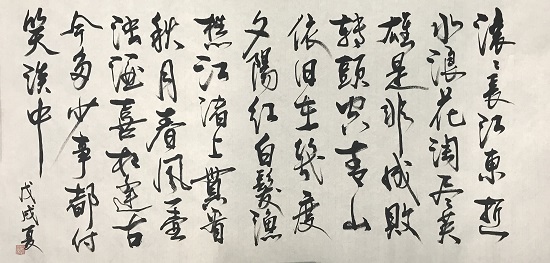 滚々長江東逝
水浪花淘尽英
雄是非成敗
转頭空青山
依旧在幾度
夕陽红白髮漁
樵江渚上慣看
秋月春風一壶
浊酒喜相逢古
今多少事都付
笑谈中
戊戌夏